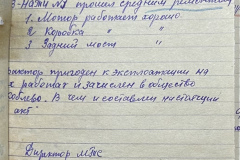 З-НАТИ №1 прошел средний ремонт
1. Мотор работает хорошо.
2 Коробка " "
3 Задний мост "
трактор пригоден к эксплоатации на
х работах и зачислен в общество
В чем и составлен настоящий
акт
Директор МТС